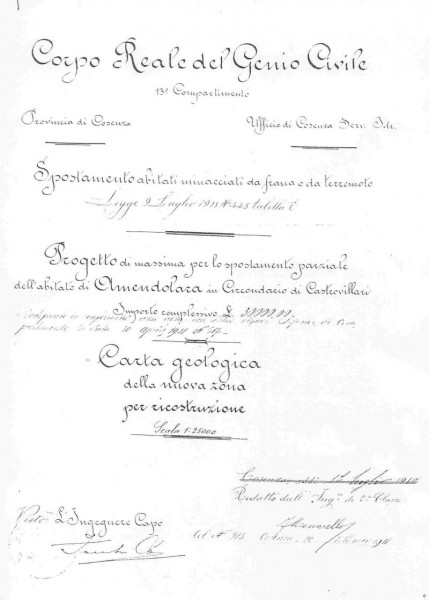 Corpo Reale del Genio Civile
13° Compartimento
Provincia di Cosenza
Ufficio di Cosenza Serv. Idr.
Spostamento abitati minacciati da frana o da terremoto
Legge 9 Luglio 1908 N° 445 tabella E
Progetto di massima per lo spostamento parziale
dell'abitato di Amendolara in Circondario di Castrovillari
Importo complessivo £.
1911 N°
Carta geologica
della nuova zona
per ricostruzione
Scala 1:25000
Cosenza, addì Luglio 1910
Redatto dall' Ing.e di 2ª Classe
Visto: L'Ingegnere Capo
Cosenza 1911